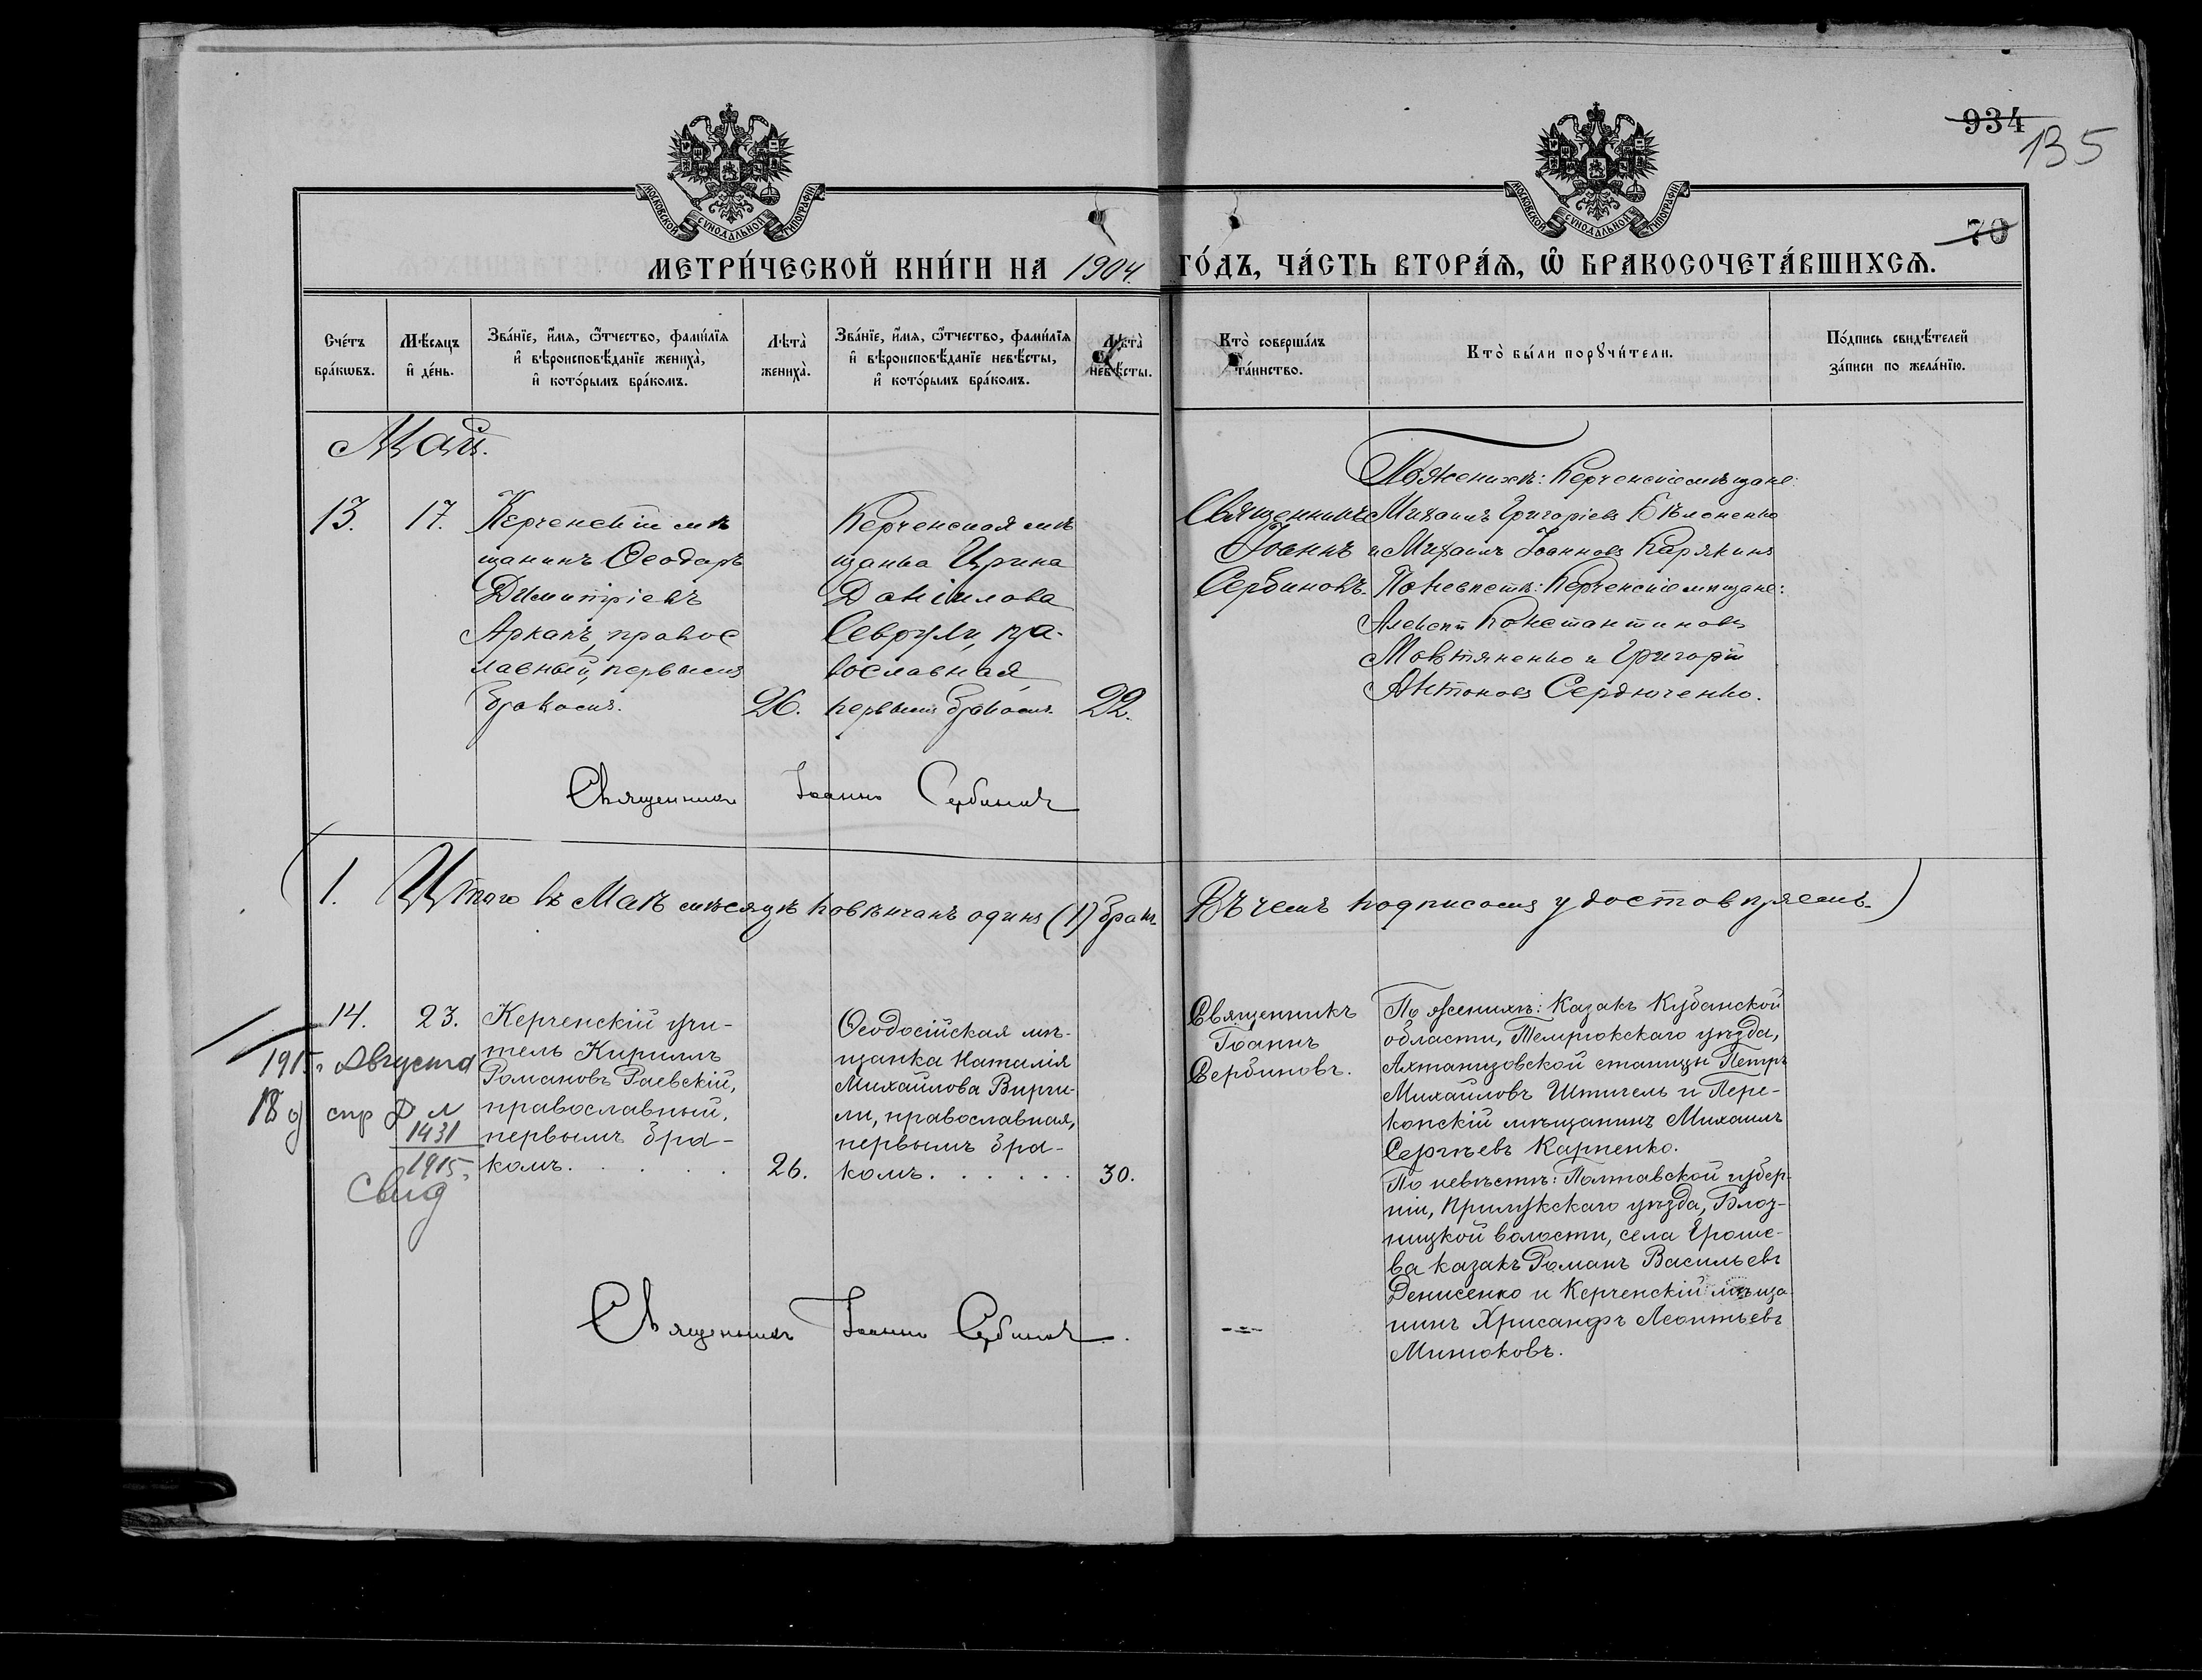 934
135
70
МОСКОВСКОЙ СѴНОДАЛЬНОЙ ТИПОГРАФІИ
МОСКОВСКОЙ СѴНОДАЛЬНОЙ ТИПОГРАФІИ
МЕТРИ́ЧЕСКОЙ КНИ́ГИ НА 1904. ГО́ДЪ, ЧА́СТЬ ВТОРА́Ѧ, Ѡ҆ БРАКОСОЧЕТА́ВШИХСѦ.
Сче́тъ
бра́кѡвъ.
Мѣ́сяцъ
и҆ де́нь.
Зва́нїе, и҆́мя, ѻ҆́тчество, фами́лїя
и҆ вѣроисповѣ́данїе жениха̀,
и҆ кото́рымъ бра́комъ.
Лѣта̀
жениха̀.
Зва́нїе, и҆́мя, ѻ҆́тчество, фами́лїя
и҆ вѣроисповѣ́данїе невѣ́сты,
и҆ кото́рымъ бра́комъ.
Лѣта̀
невѣ́сты.
Кто̀ соверша́лъ
та́инство.
Кто̀ бы́ли порꙋчи́тели.
По́дпись свидѣ́телей
за́писи по жела́нїю.
Май.
13.
17.
Керченскій мѣ
щанинъ Ѳеодоръ
Димитріевъ
Арканъ, правос
лавный, первымъ
бракомъ.
26.
Керченская мѣ
щанка Ирина
Даніилова
Севргули, пра-
вославная
первымъ бракомъ.
22.
Священникъ
Іоаннъ
Сербиновъ.
По женихѣ: Керченскіе мѣщане:
Михаилъ Григоріевъ Бѣлоненко
и Михаилъ Іоанновъ Карякинъ
По невѣстѣ: Керченскіе мѣщане:
Алексѣй Константиновъ
Мовтяненко и Григорій
Антоновъ Сердюченко.
Священникъ Іоаннъ Сербиновъ
1. Итого въ Маѣ мѣсяцѣ повѣнчанъ одинъ (1) бракъ. Въ чемъ подписомъ удостовѣряемъ.
14.
23.
1915. Августа
18 д спр
1431
1915.
Свид
Керченскій учи-
тель Кириллъ
Романовъ Раевскій,
православный,
первымъ бра-
комъ. . . . . .
26.
Ѳеодосійская мѣ-
щанка Наталія
Михайлова Вирги-
ли, православная,
первымъ бра-
комъ. . . . . . .
30.
Священникъ
Іоаннъ
Сербиновъ.
По женихѣ: Казакъ Кубанской
области, Темрюкскаго уѣзда,
Ахтанизовской станицы Петръ
Михайловъ Штигель и Пере-
копскій мѣщанинъ Михаилъ
Сергѣевъ Карпенко.
По невѣстѣ: Полтавской губер-
ніи, Прилукскаго уѣзда, Блоз-
ницкой волости, села Ероше-
ва казакъ Романъ Васильевъ
Денисенко и Керченскій мѣща
нинъ Хрисанфъ Леонтьевъ
Митюковъ.
Священникъ Іоаннъ Сербиновъ.